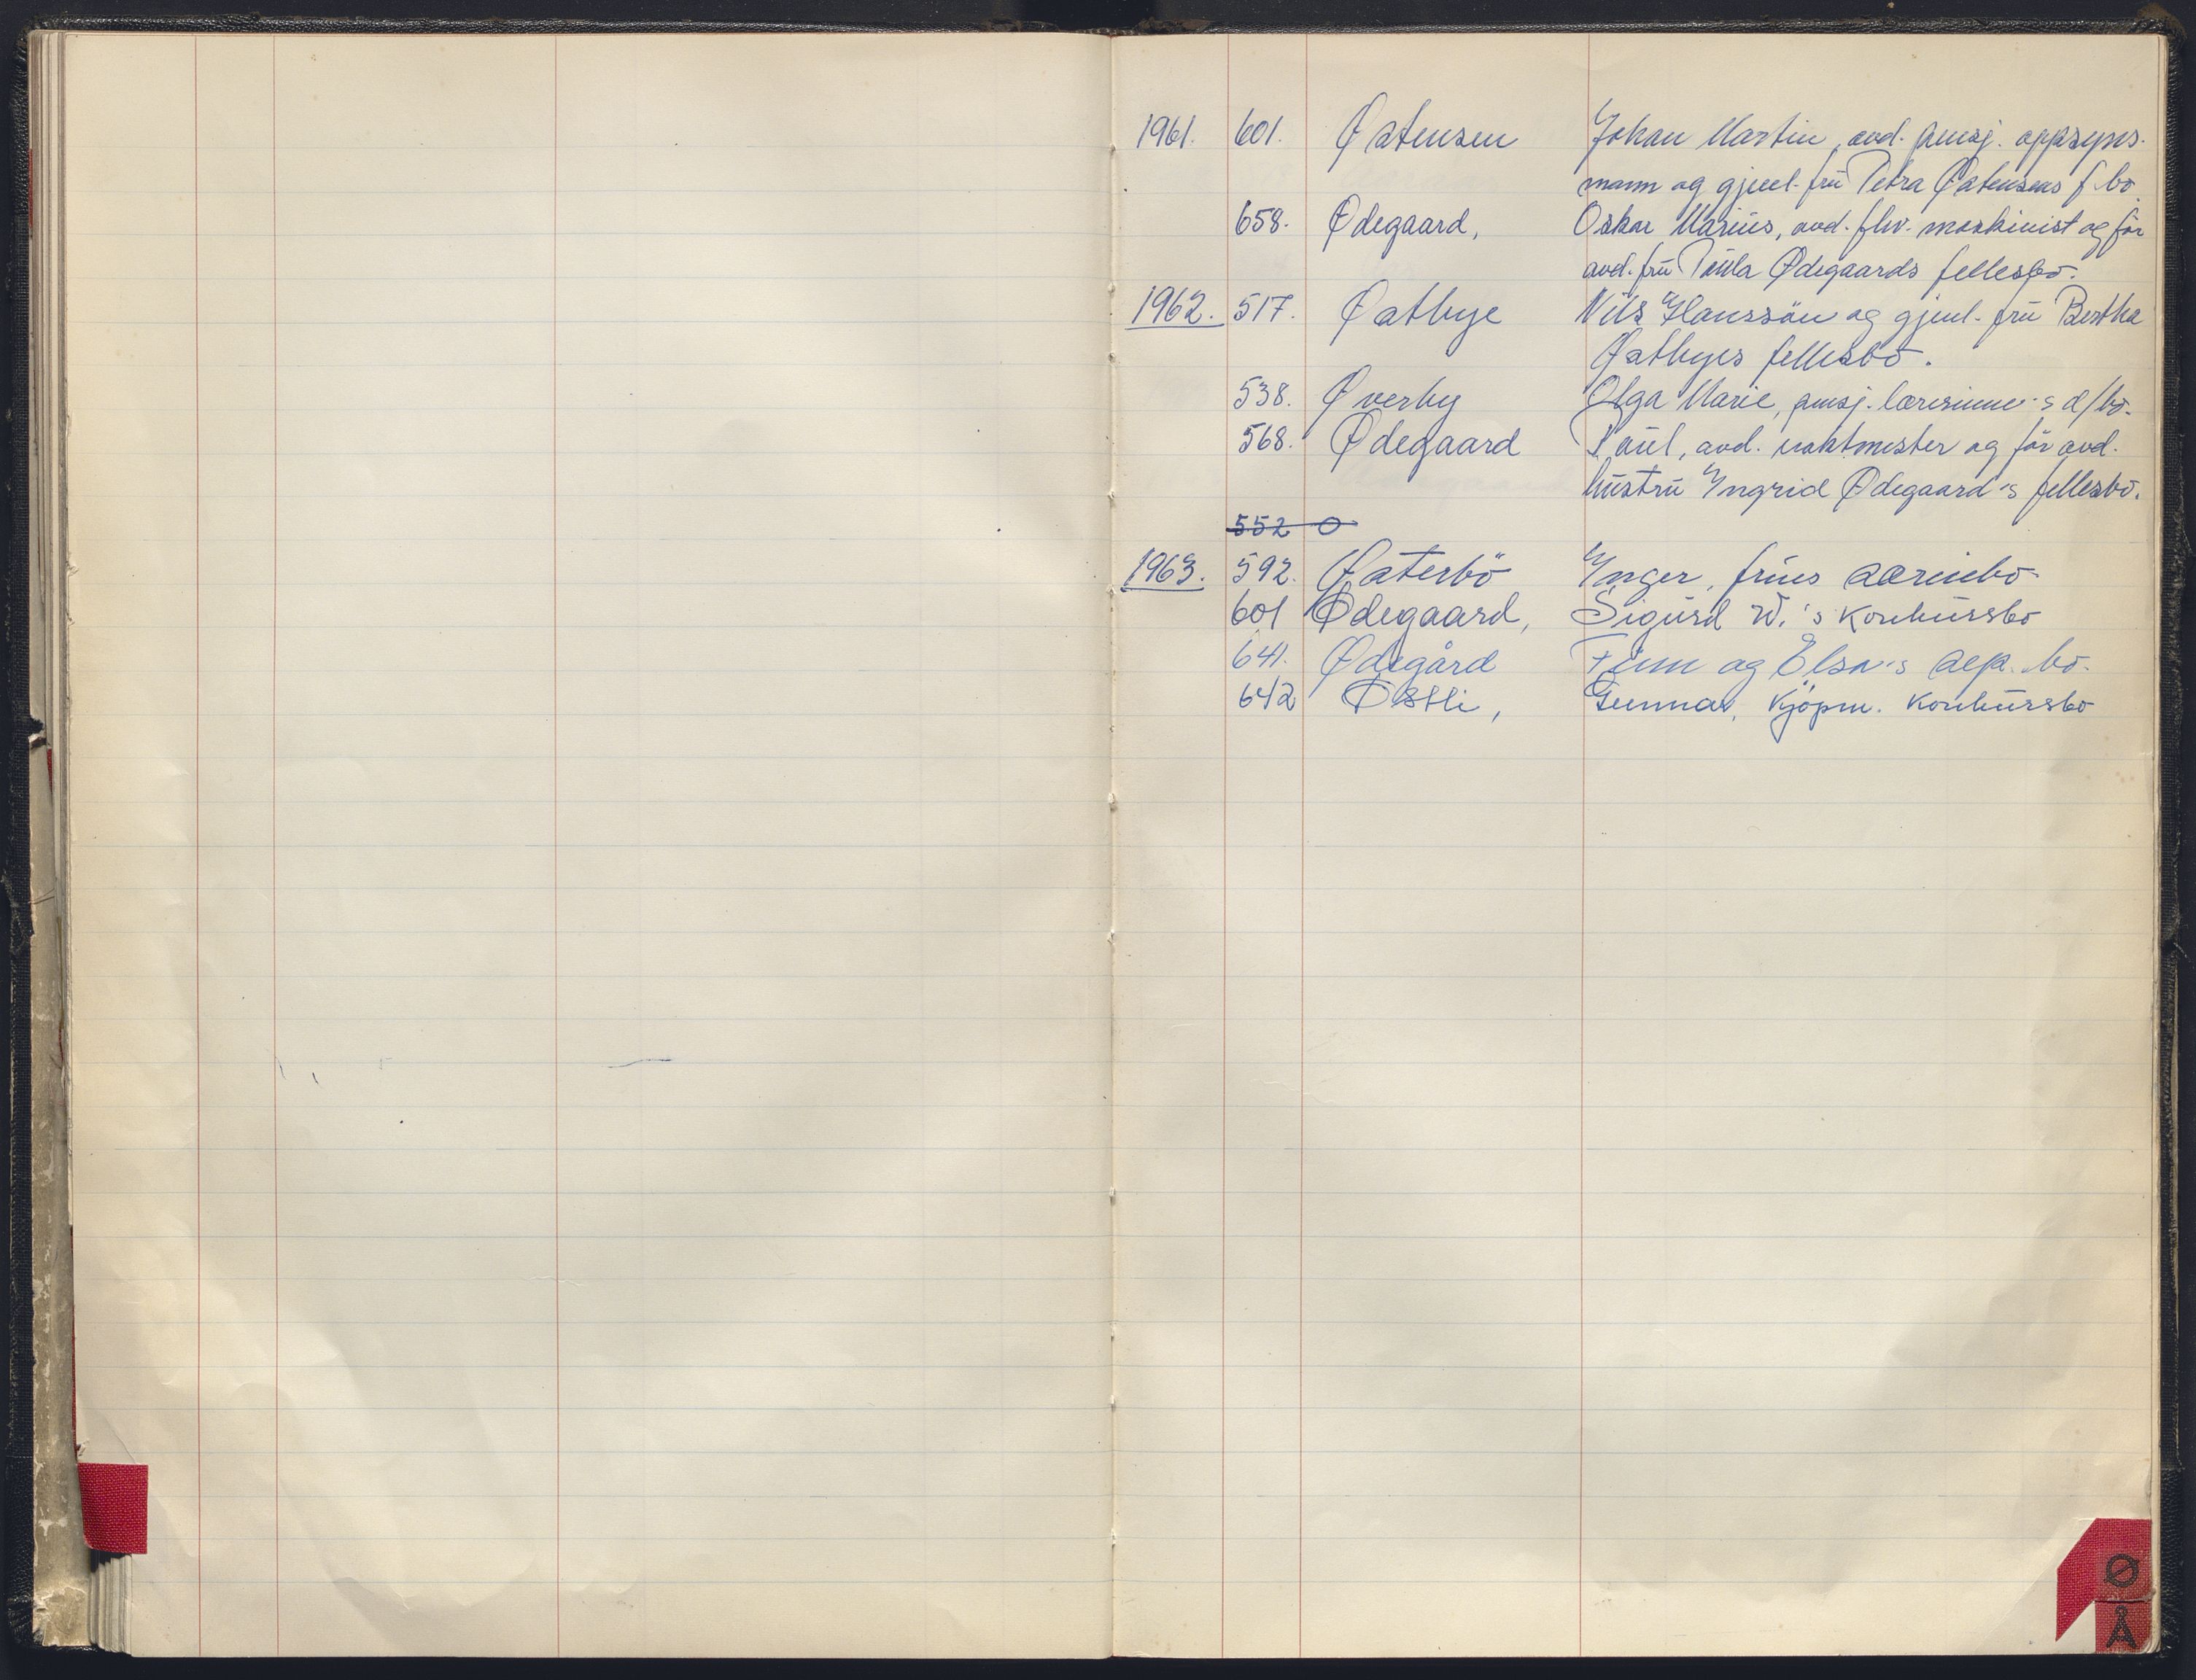 1961. 601. Østensen Johan Martin, avd. pensj. oppsyns-
mann og gjenl. fru Petra Østensens f. bo.
658. Ødegaard, Oskar Marius, avd. fhv. maskinist og før
avd. fru Paula Ødegaards fellesbo.
1962. 517. Østbye Nils Hanssön og gjenl. fru Bertha
Østbyes fellesbo.
538. Øverby Olga Marie, pensj. lærerinne's d/bo.
568. Ødegaard Paul, avd. vaktmester og før avd.
hustru Ingrid Ødegaard's fellesbo.
552 O
1963. 592. Østerbö Inger, frues særeiebo
601 Ødegaard, Sigurd W.'s Konkursbo
641. Ødegård Finn og Elsa's sep. bo.
642 Østli, Gunnar, Kjöpm. Konkursbo
Ø
Å